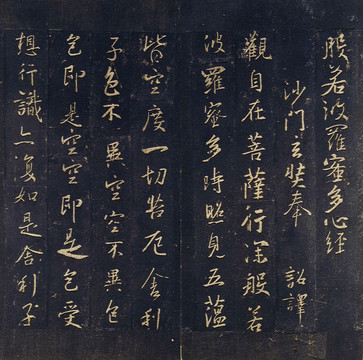 般若波羅蜜多心經
沙門玄奘奉 詔譯
觀自在菩薩行深般若
波羅蜜多時照見五蘊
皆空度一切苦厄舍利
子色不異空空不異色
色即是空空即是色受
想行識亦復如是舍利子